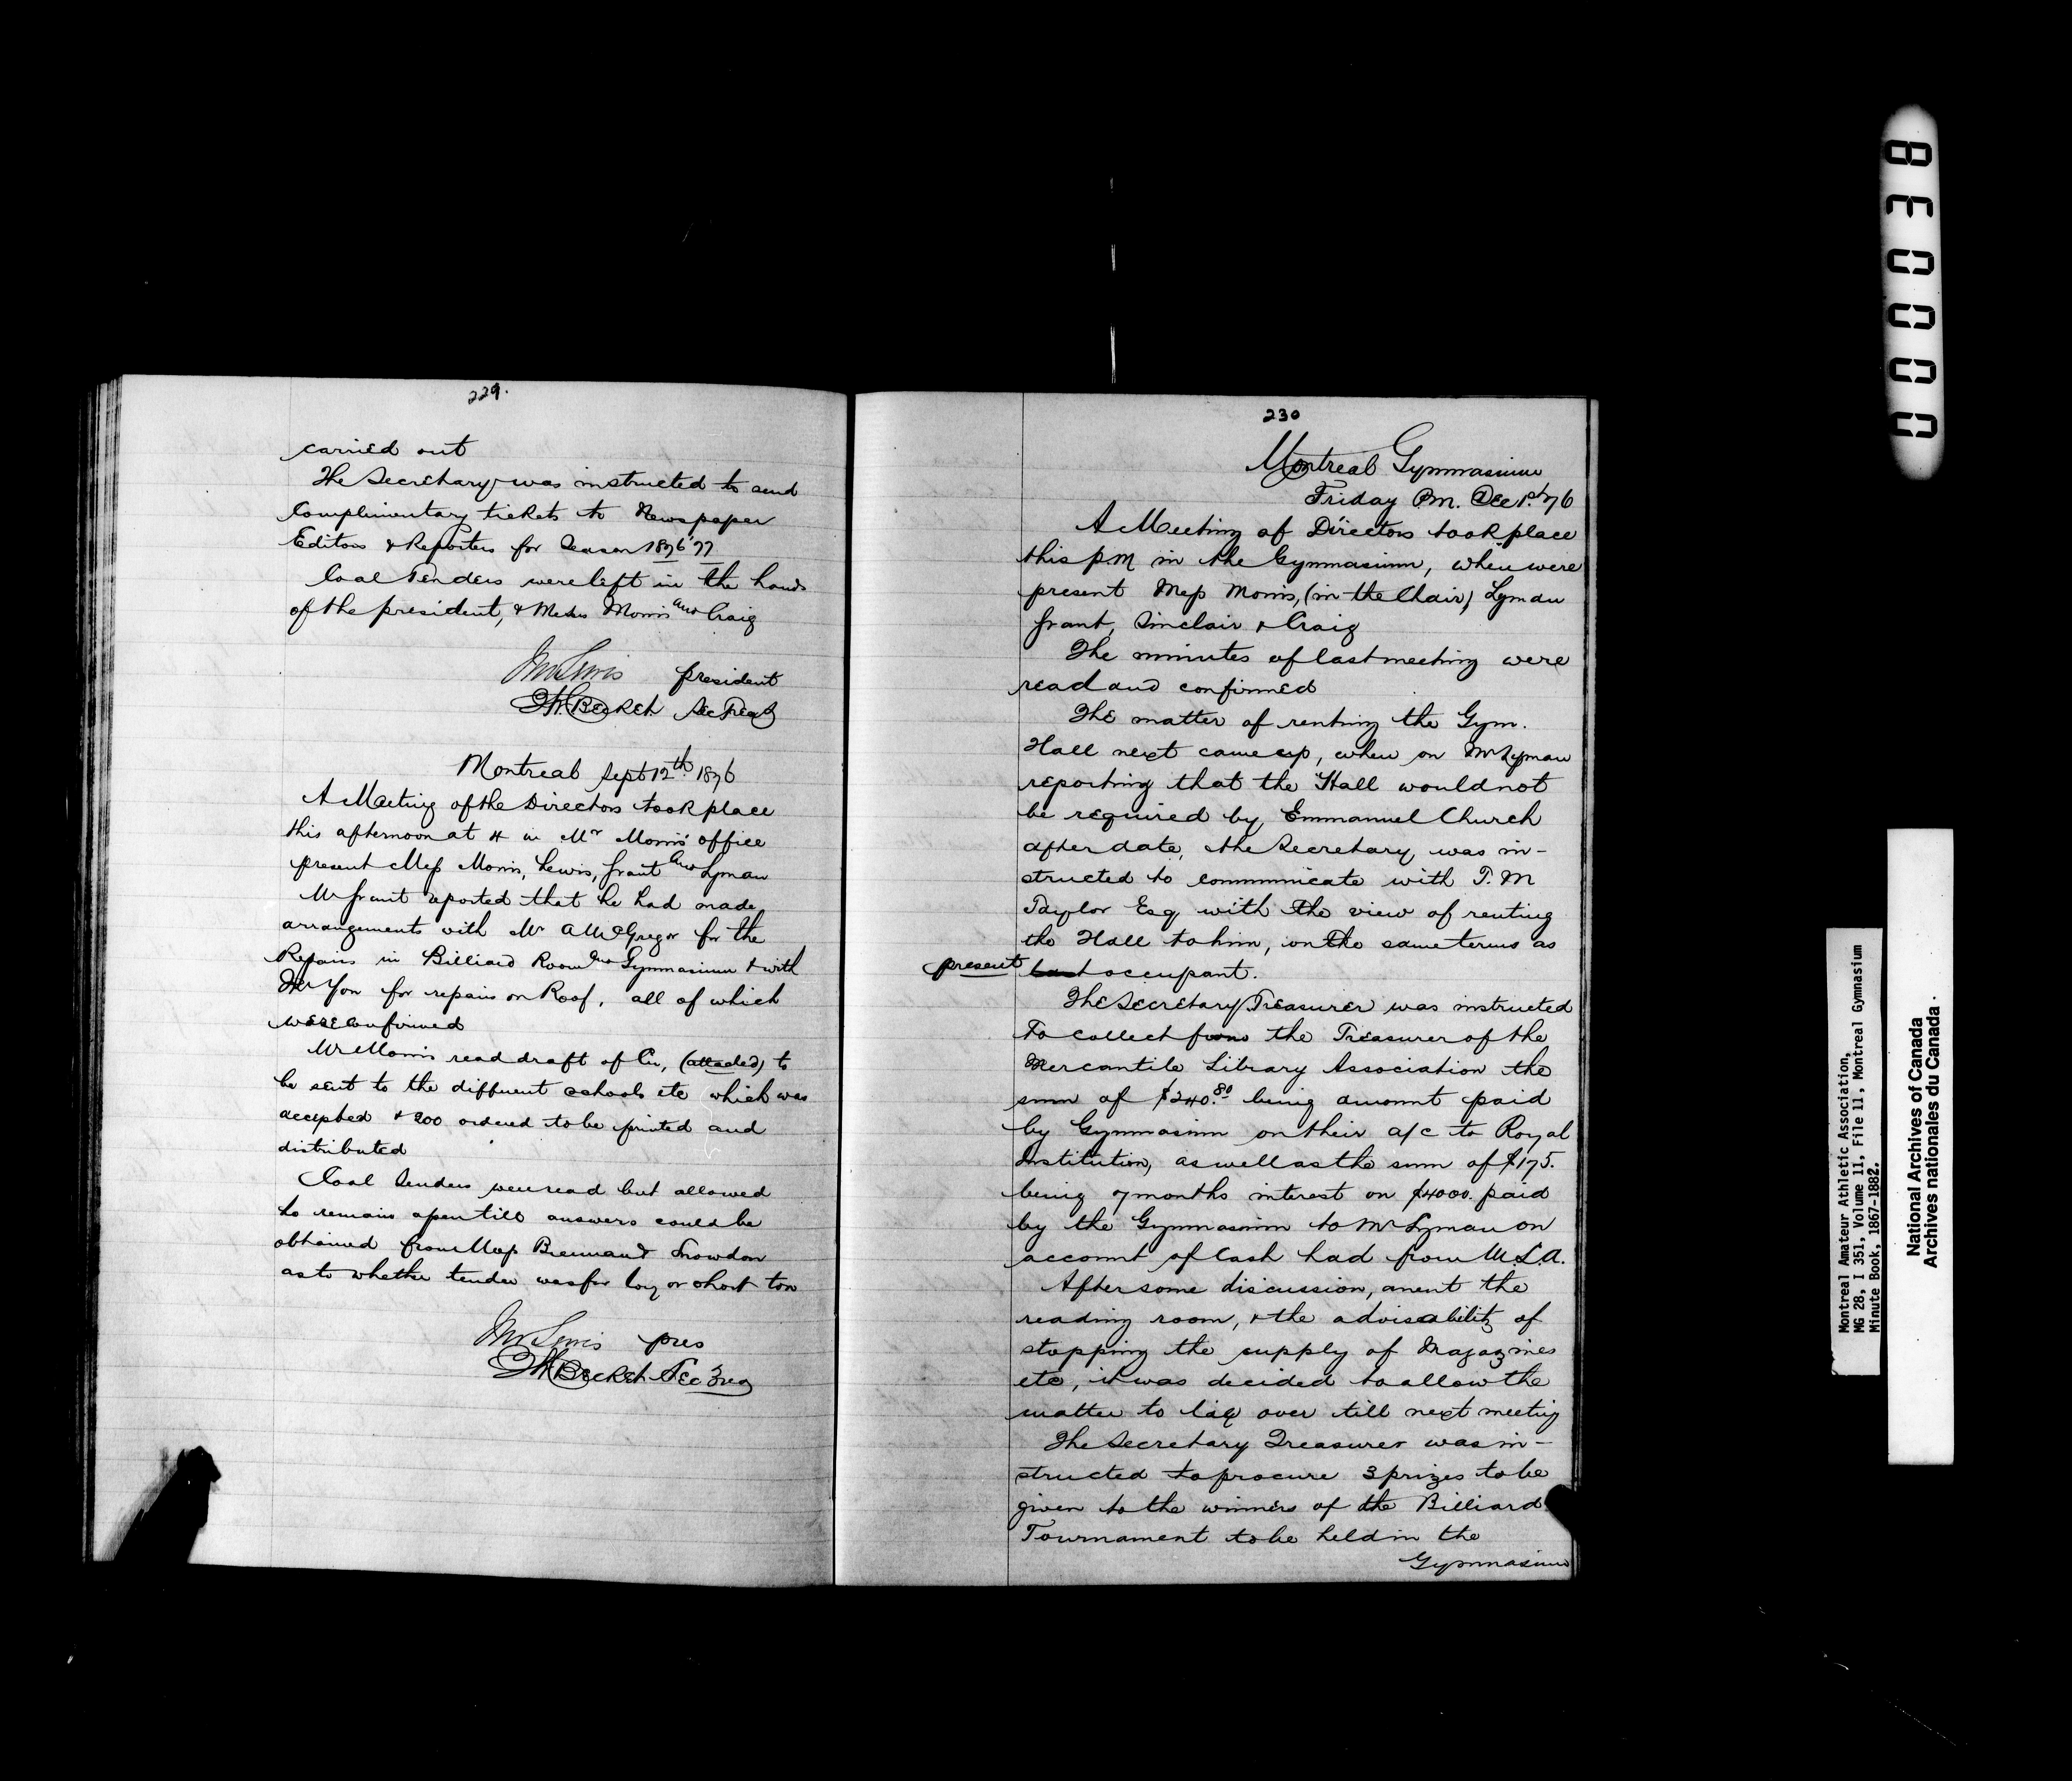 229.
carried out
The Secretary was instructed to send
Complimentary tickets to Newspaper
Editors & Reporters for Season 1876'77
Coal Tenders were left in the hands
of the president, & Messrs Morris and Craig
Jno Lewis president
J.H. Becket Sec Treas
Montreal Sept 12th 1876
A Meeting of the Directors took place
this afternoon at 4 in Mr Morris' office
present Mess Morris, Lewis, Grant and Lyman
Mr Grant reported that he had made
arrangements with Mr A McGregor for the
Repairs in Billiard Room and Gymnasium & with
Mr Yon for repairs on Roof, all of which
were confirmed
Mr Morris read draft of Cir, (attached) to
be sent to the different schools etc which was
accepted & 200 ordered to be printed and
distributed
Coal Tenders were read but allowed
to remain open till answers could be
obtained from Mess Brennan & Snowdon
as to whether tender was for long or short ton
Jno Lewis pres
J.H. Becket Sec Treas
230
Montreal Gymnasium
Friday P.m. Dec 1st. 76
A Meeting of Directors took place
this p.m in the Gymnasium, when were
present Mess Morris, (in the Chair) Lyman
Grant, Sinclair & Craig
The minutes of last meeting were
read and confirmed
The matter of renting the Gym.
Hall next came up, when on Mr Lyman
reporting that the Hall would not
be required by Emmanuel Church
after date, the Secretary was in-
structed to communicate with T. M
Taylor Esq with the view of renting
the Hall to him, on the same terms as
present last occupant.
The Secretary Treasurer was instructed
to collect from the Treasurer of the
Mercantile Library Association the
sum of $240.80 being amount paid
by Gymnasium on their a/c to Royal
Institution, as well as the sum of $175.
being 7 months interest on $4000. paid
by the Gymnasium to Mr Lyman on
account of Cash had from M.L.A.
After some discussion, anent the
reading room, & the advisability of
stopping the supply of Magazines
etc, it was decided to allow the
matter to lay over till next meeting
The Secretary Treasurer was in-
structed to procure 3 prizes to be
given to the winners of the Billiard
Tournament to be held in the
Gymnasium
000038
Montreal Amateur Athletic Association,
MG 28, I 351, Volume 11, File 11, Montreal Gymnasium
Minute Book, 1867-1882.
National Archives of Canada
Archives nationales du Canada